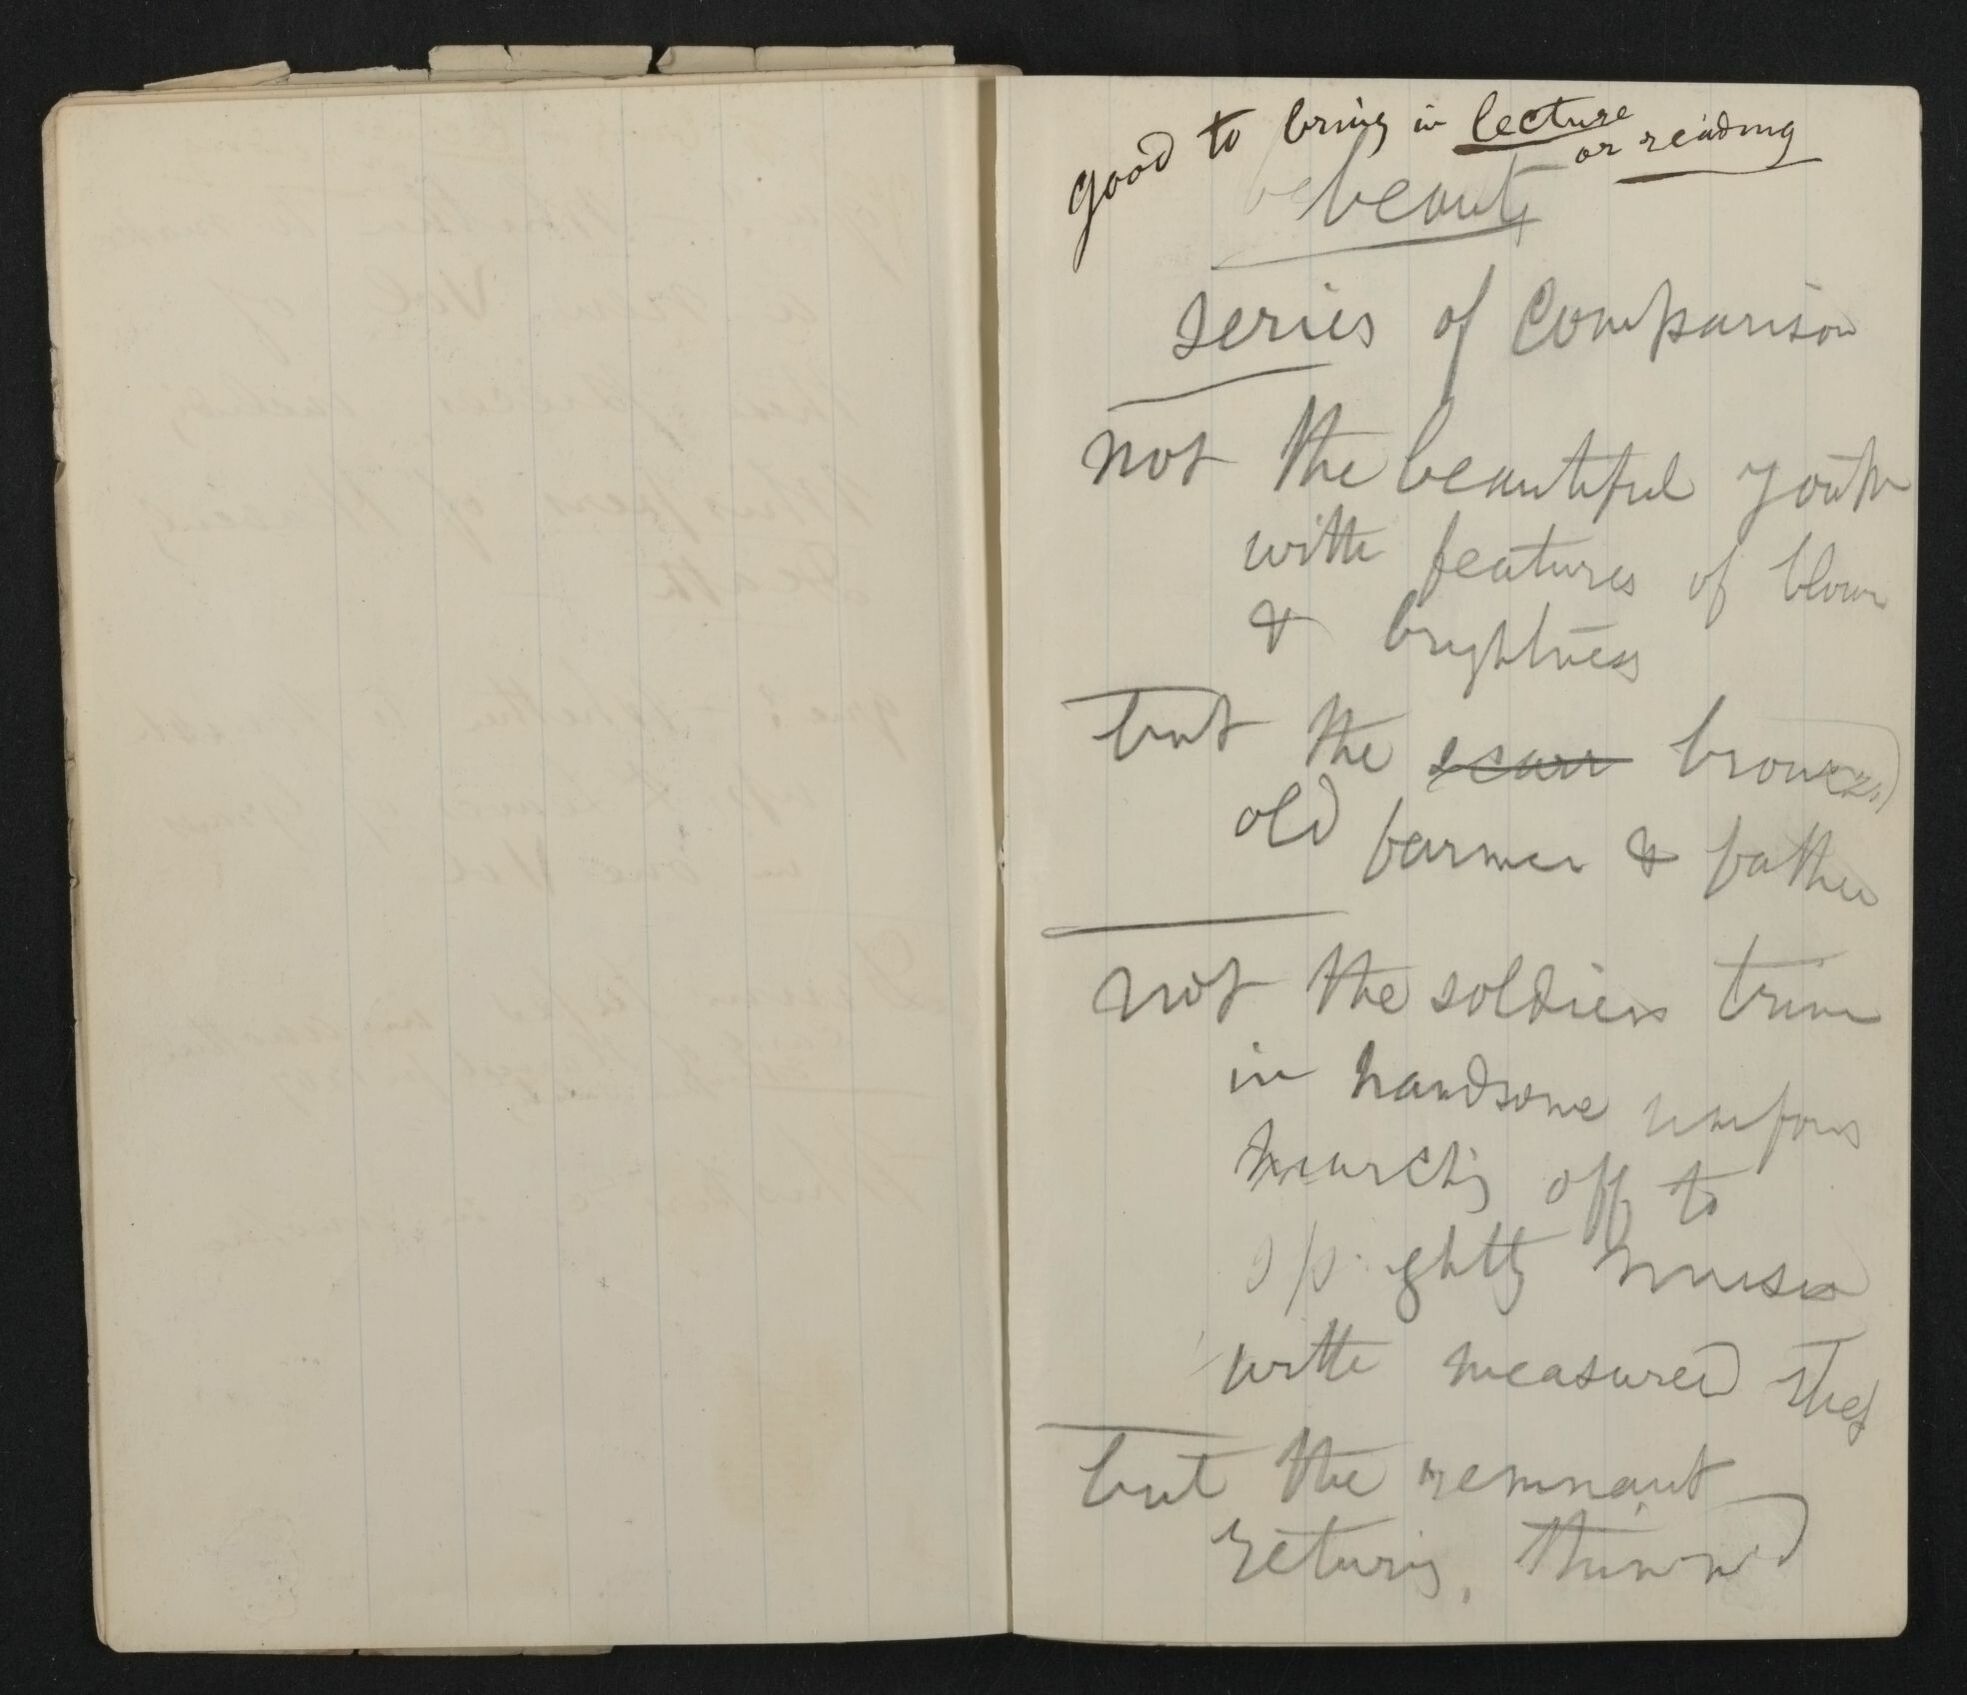 good to bring in lecture
or reading
beauty
series of comparison
not the beautiful youth
with features of bloom
& brightness
but the scarr bronzed
old farmer & father
not the soldiers trim
in handsome uniforms
marching off to
sprightly music
with measured step
but the remnant
returning, thinned